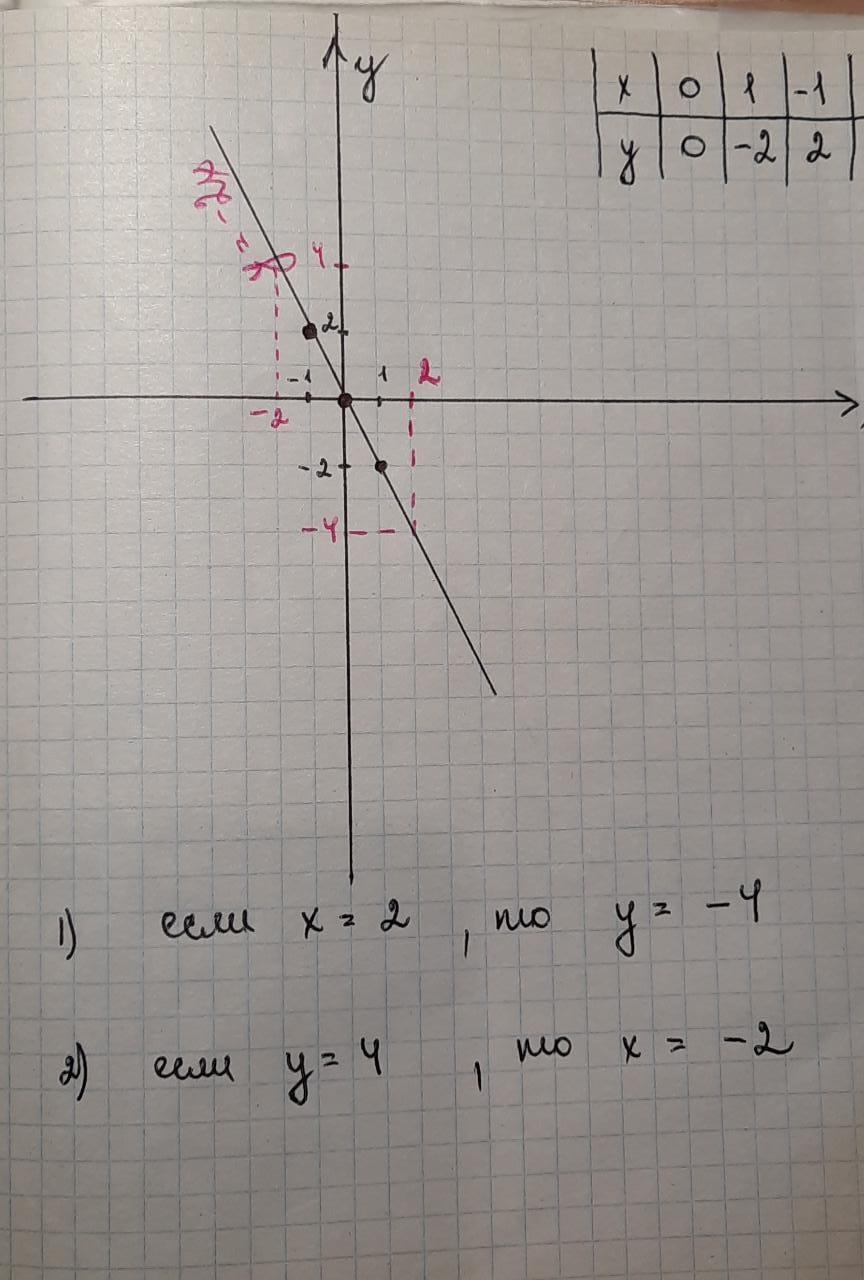 y
x 0 1 -1
y 0 -2 2
4
2
-1 1 2
-2
-2
-4
1) если x = 2 , то y = -4
2) если y = 4 , то x = -2